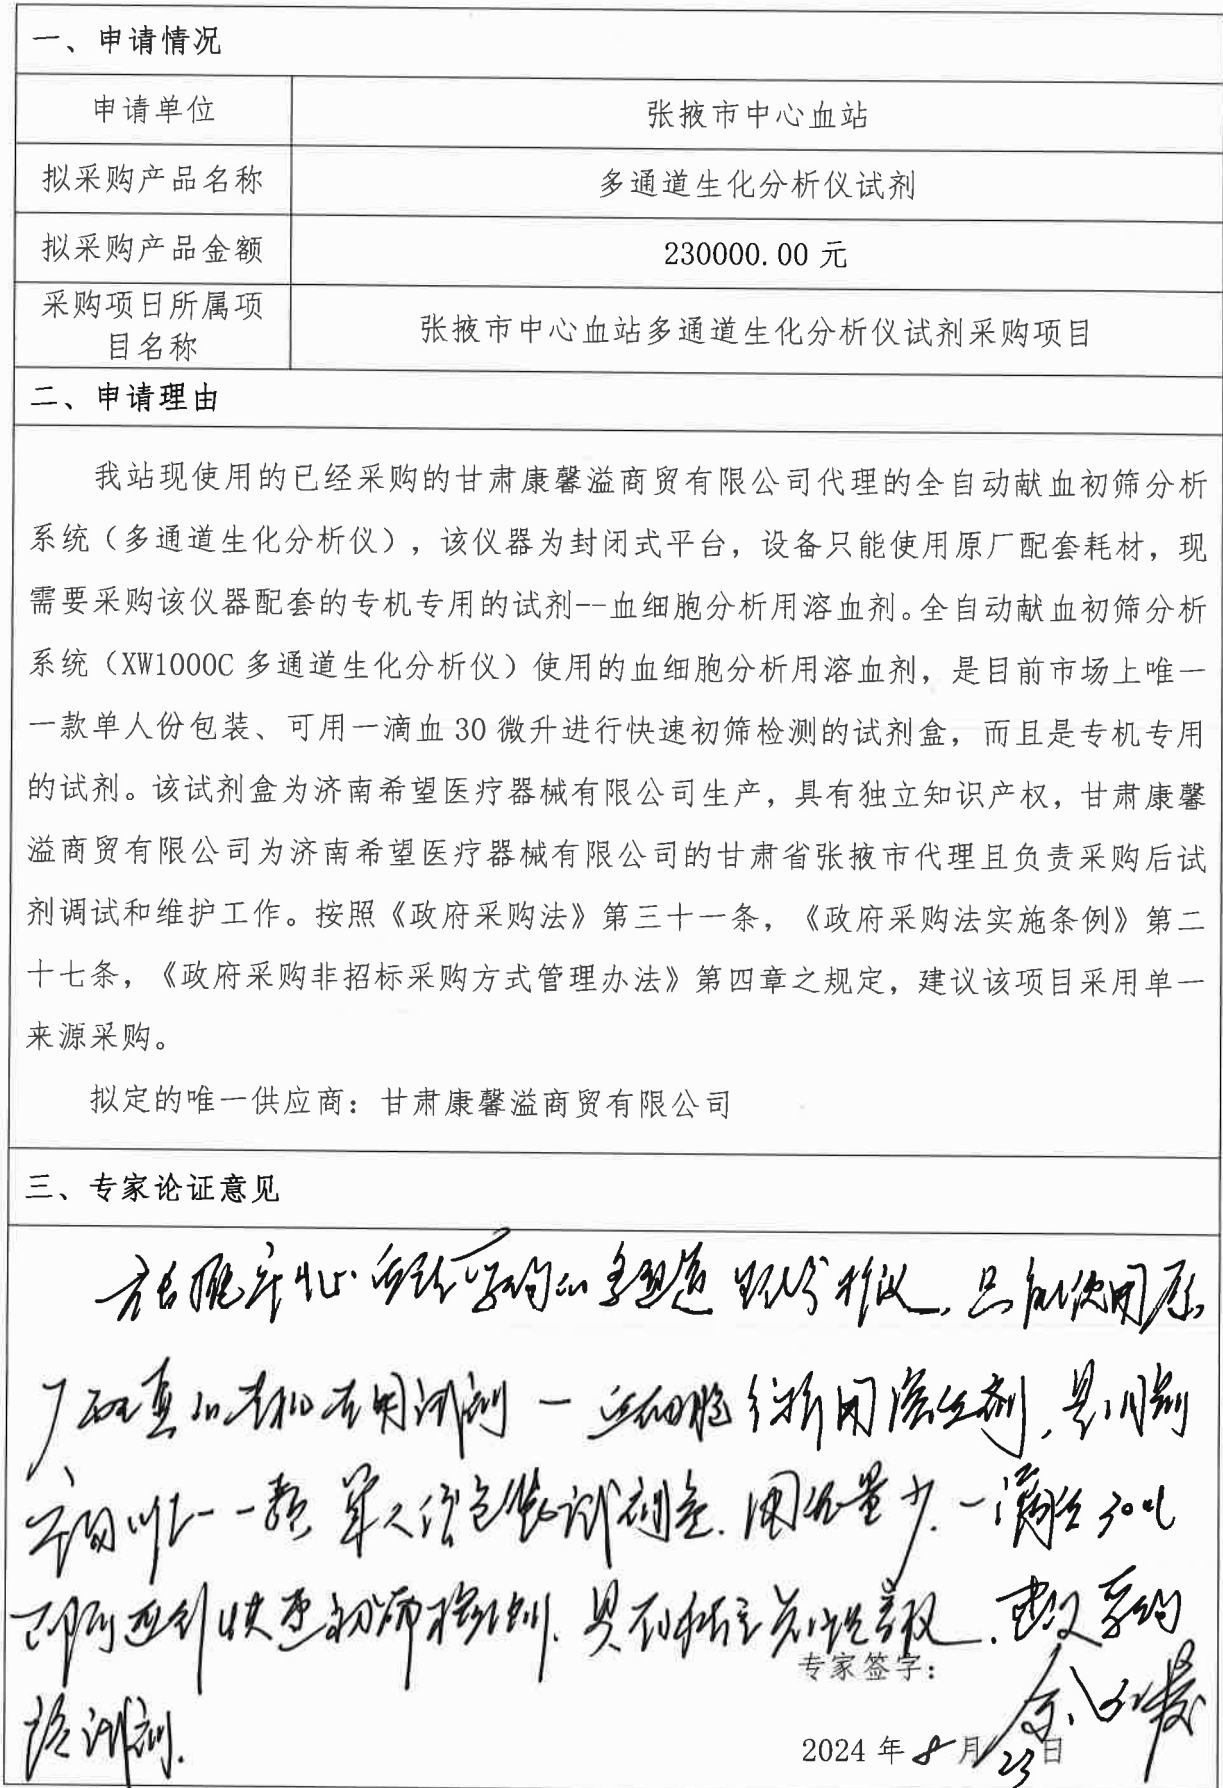 一、申请情况
申请单位
张掖市中心血站
拟采购产品名称
多通道生化分析仪试剂
拟采购产品金额
230000.00 元
采购项日所属项
目名称
张掖市中心血站多通道生化分析仪试剂采购项目
二、申请理由
我站现使用的已经采购的甘肃康馨溢商贸有限公司代理的全自动献血初筛分析
系统（多通道生化分析仪），该仪器为封闭式平台，设备只能使用原厂配套耗材，现
需要采购该仪器配套的专机专用的试剂--血细胞分析用溶血剂。全自动献血初筛分析
系统（XW1000C 多通道生化分析仪）使用的血细胞分析用溶血剂，是目前市场上唯一
一款单人份包装、可用一滴血 30 微升进行快速初筛检测的试剂盒，而且是专机专用
的试剂。该试剂盒为济南希望医疗器械有限公司生产，具有独立知识产权，甘肃康馨
溢商贸有限公司为济南希望医疗器械有限公司的甘肃省张掖市代理且负责采购后试
剂调试和维护工作。按照《政府采购法》第三十一条，《政府采购法实施条例》第二
十七条，《政府采购非招标采购方式管理办法》第四章之规定，建议该项目采用单一
来源采购。
拟定的唯一供应商：甘肃康馨溢商贸有限公司
三、专家论证意见
中心血站采购的多通道生化分析仪，只能使用原
厂配套的专机专用试剂一血细胞分析用溶血剂，是目前
市场唯一一款单人份包装试剂盒，用血量少，一滴血30ul
即可达到快速初筛检测，具有独立知识产权，建议采购
该试剂．
专家签字：
2024 年 8 月 23 日